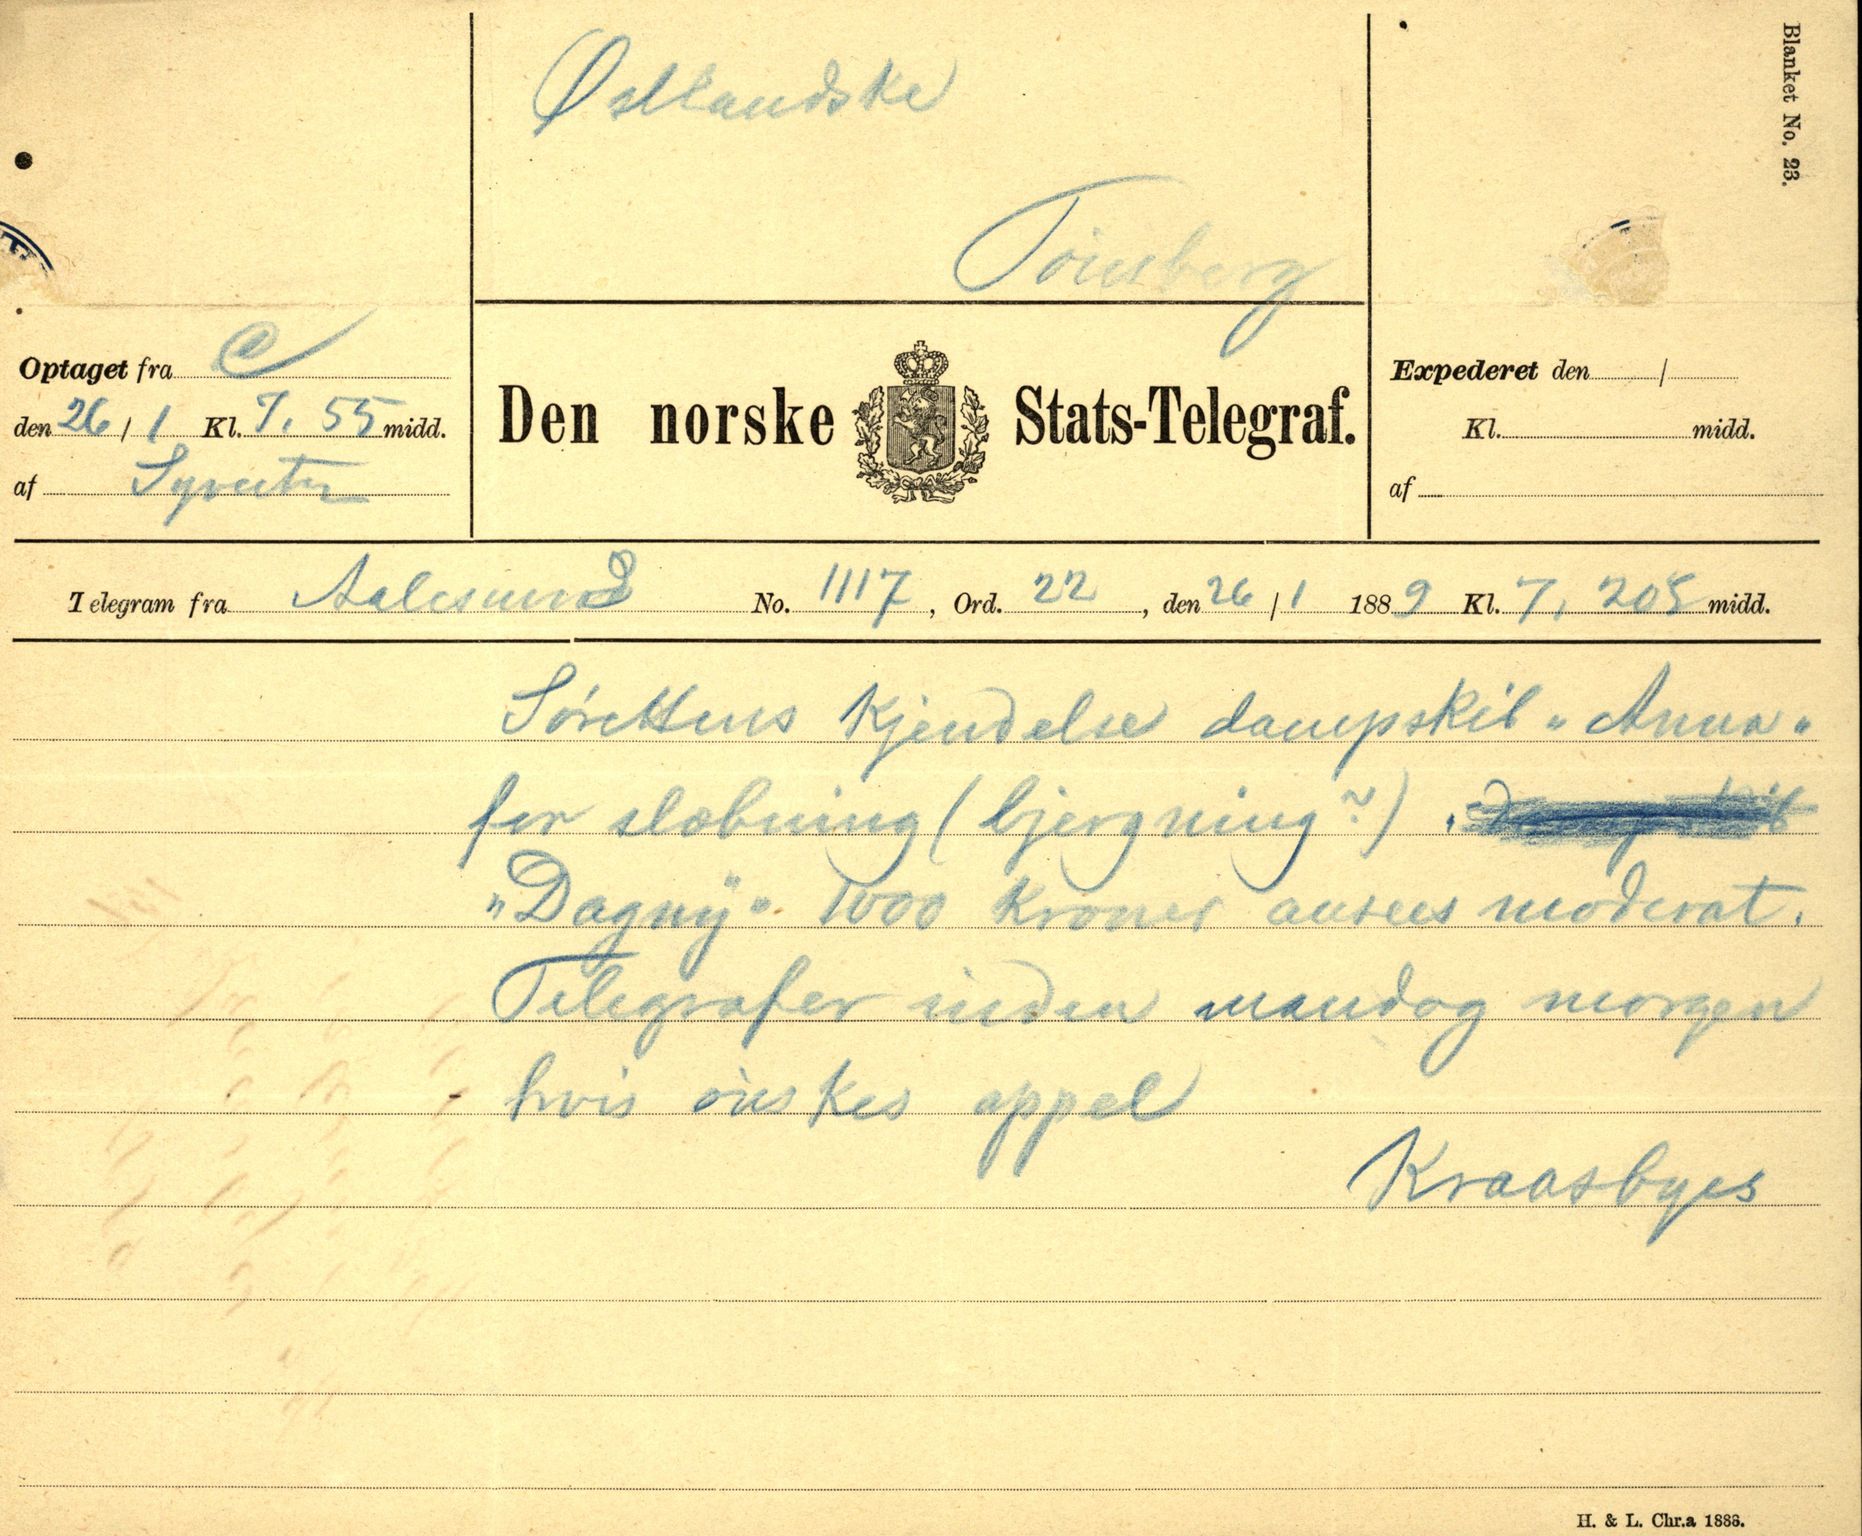 Blanket No. 23.
Østlandske
Tönsberg
Optaget fra C
den 26/1 Kl. 7. 55 midd.
af
Den norske Stats-Telegraf.
Expederet den /
Kl. midd.
af
Telegram fra Aalesund No. 1117, Ord. 22, den 26/1 1889 Kl. 7, 20 midd.
Sörettens Kjendelse dampskib "Anna"
for slæbning (bjergning?).
"Dagny" 1000 Kroner ansees moderat.
Telegrafer inden mandag morgen
hvis önskes appel
Kraasbyes
H. & L. Chr.a 1888.